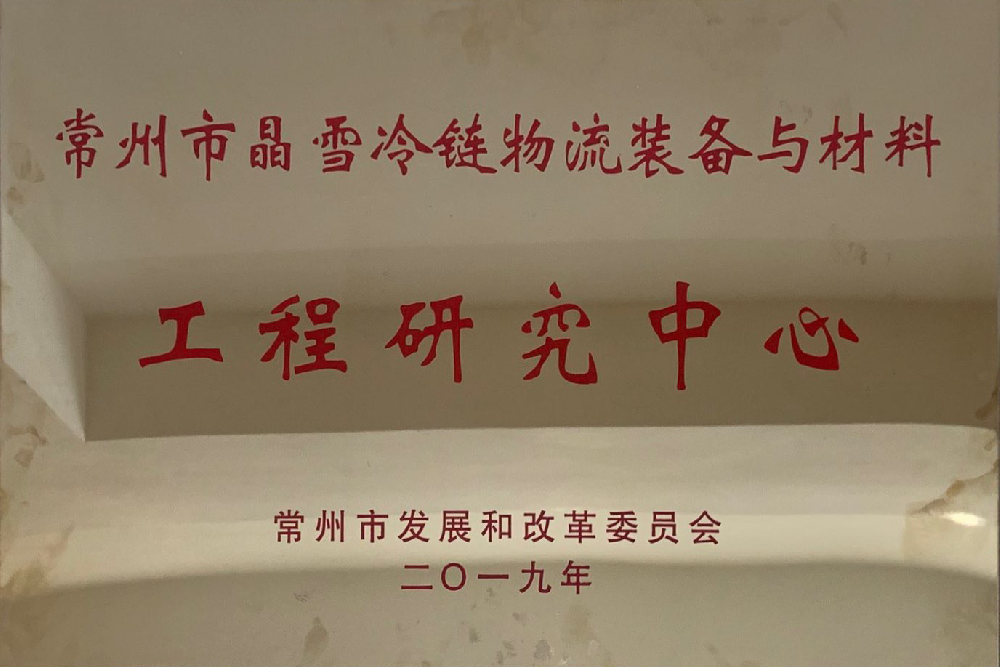 常州市晶雪冷链物流装备与材料
工程研究中心
常州市发展和改革委员会
二〇一九年